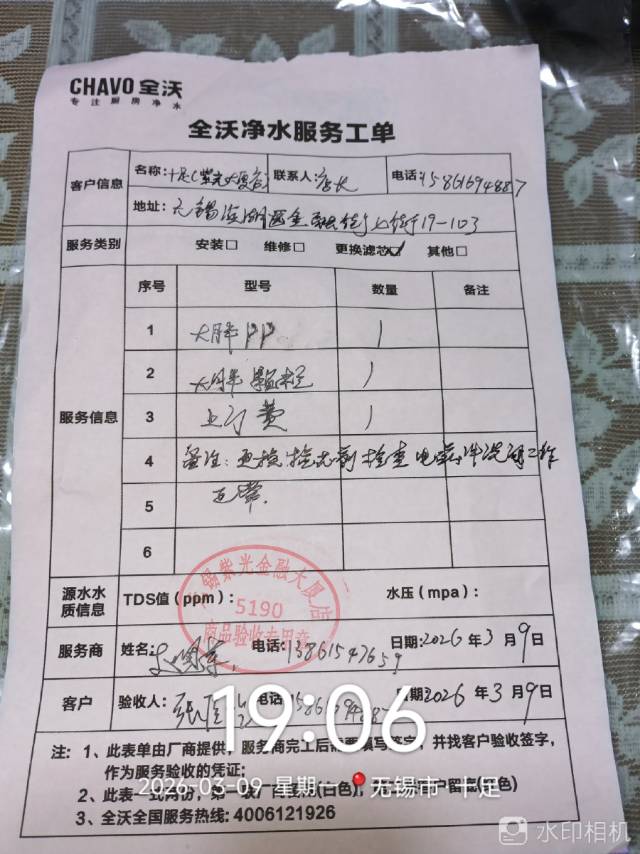 CHAVO 全沃
专注厨房净水
全沃净水服务工单
客户信息
名称: 十足(紫光大厦店) 联系人: 店长 电话: 15861694887
地址: 无锡滨湖区金融街上街19-103
服务类别 安装□ 维修□ 更换滤芯☑ 其他□
服务信息
序号 型号 数量 备注
1 大胖PP 1
2 大胖颗粒 1
3 上门费 1
4 备注: 更换 检查电磁阀 工作
5 正常.
6
源水水质信息 TDS值(ppm): 水压(mpa):
锡紫光金融大厦店
5190
商品验收专用章
服务商 姓名: 电话: 13861547659 日期: 2026年3月9日
客户 验收人: 张 电话: 日期2026年3月9日
19:06
注: 1、此表单由厂商提供, 服务商完工后需要填写签字, 并找客户验收签字,
作为服务验收的凭证;
2026-03-09 星期一 无锡市·十足
2、此表一式两份, 第一联厂 (白色), 户留 色)
3、全沃全国服务热线: 4006121926
水印相机